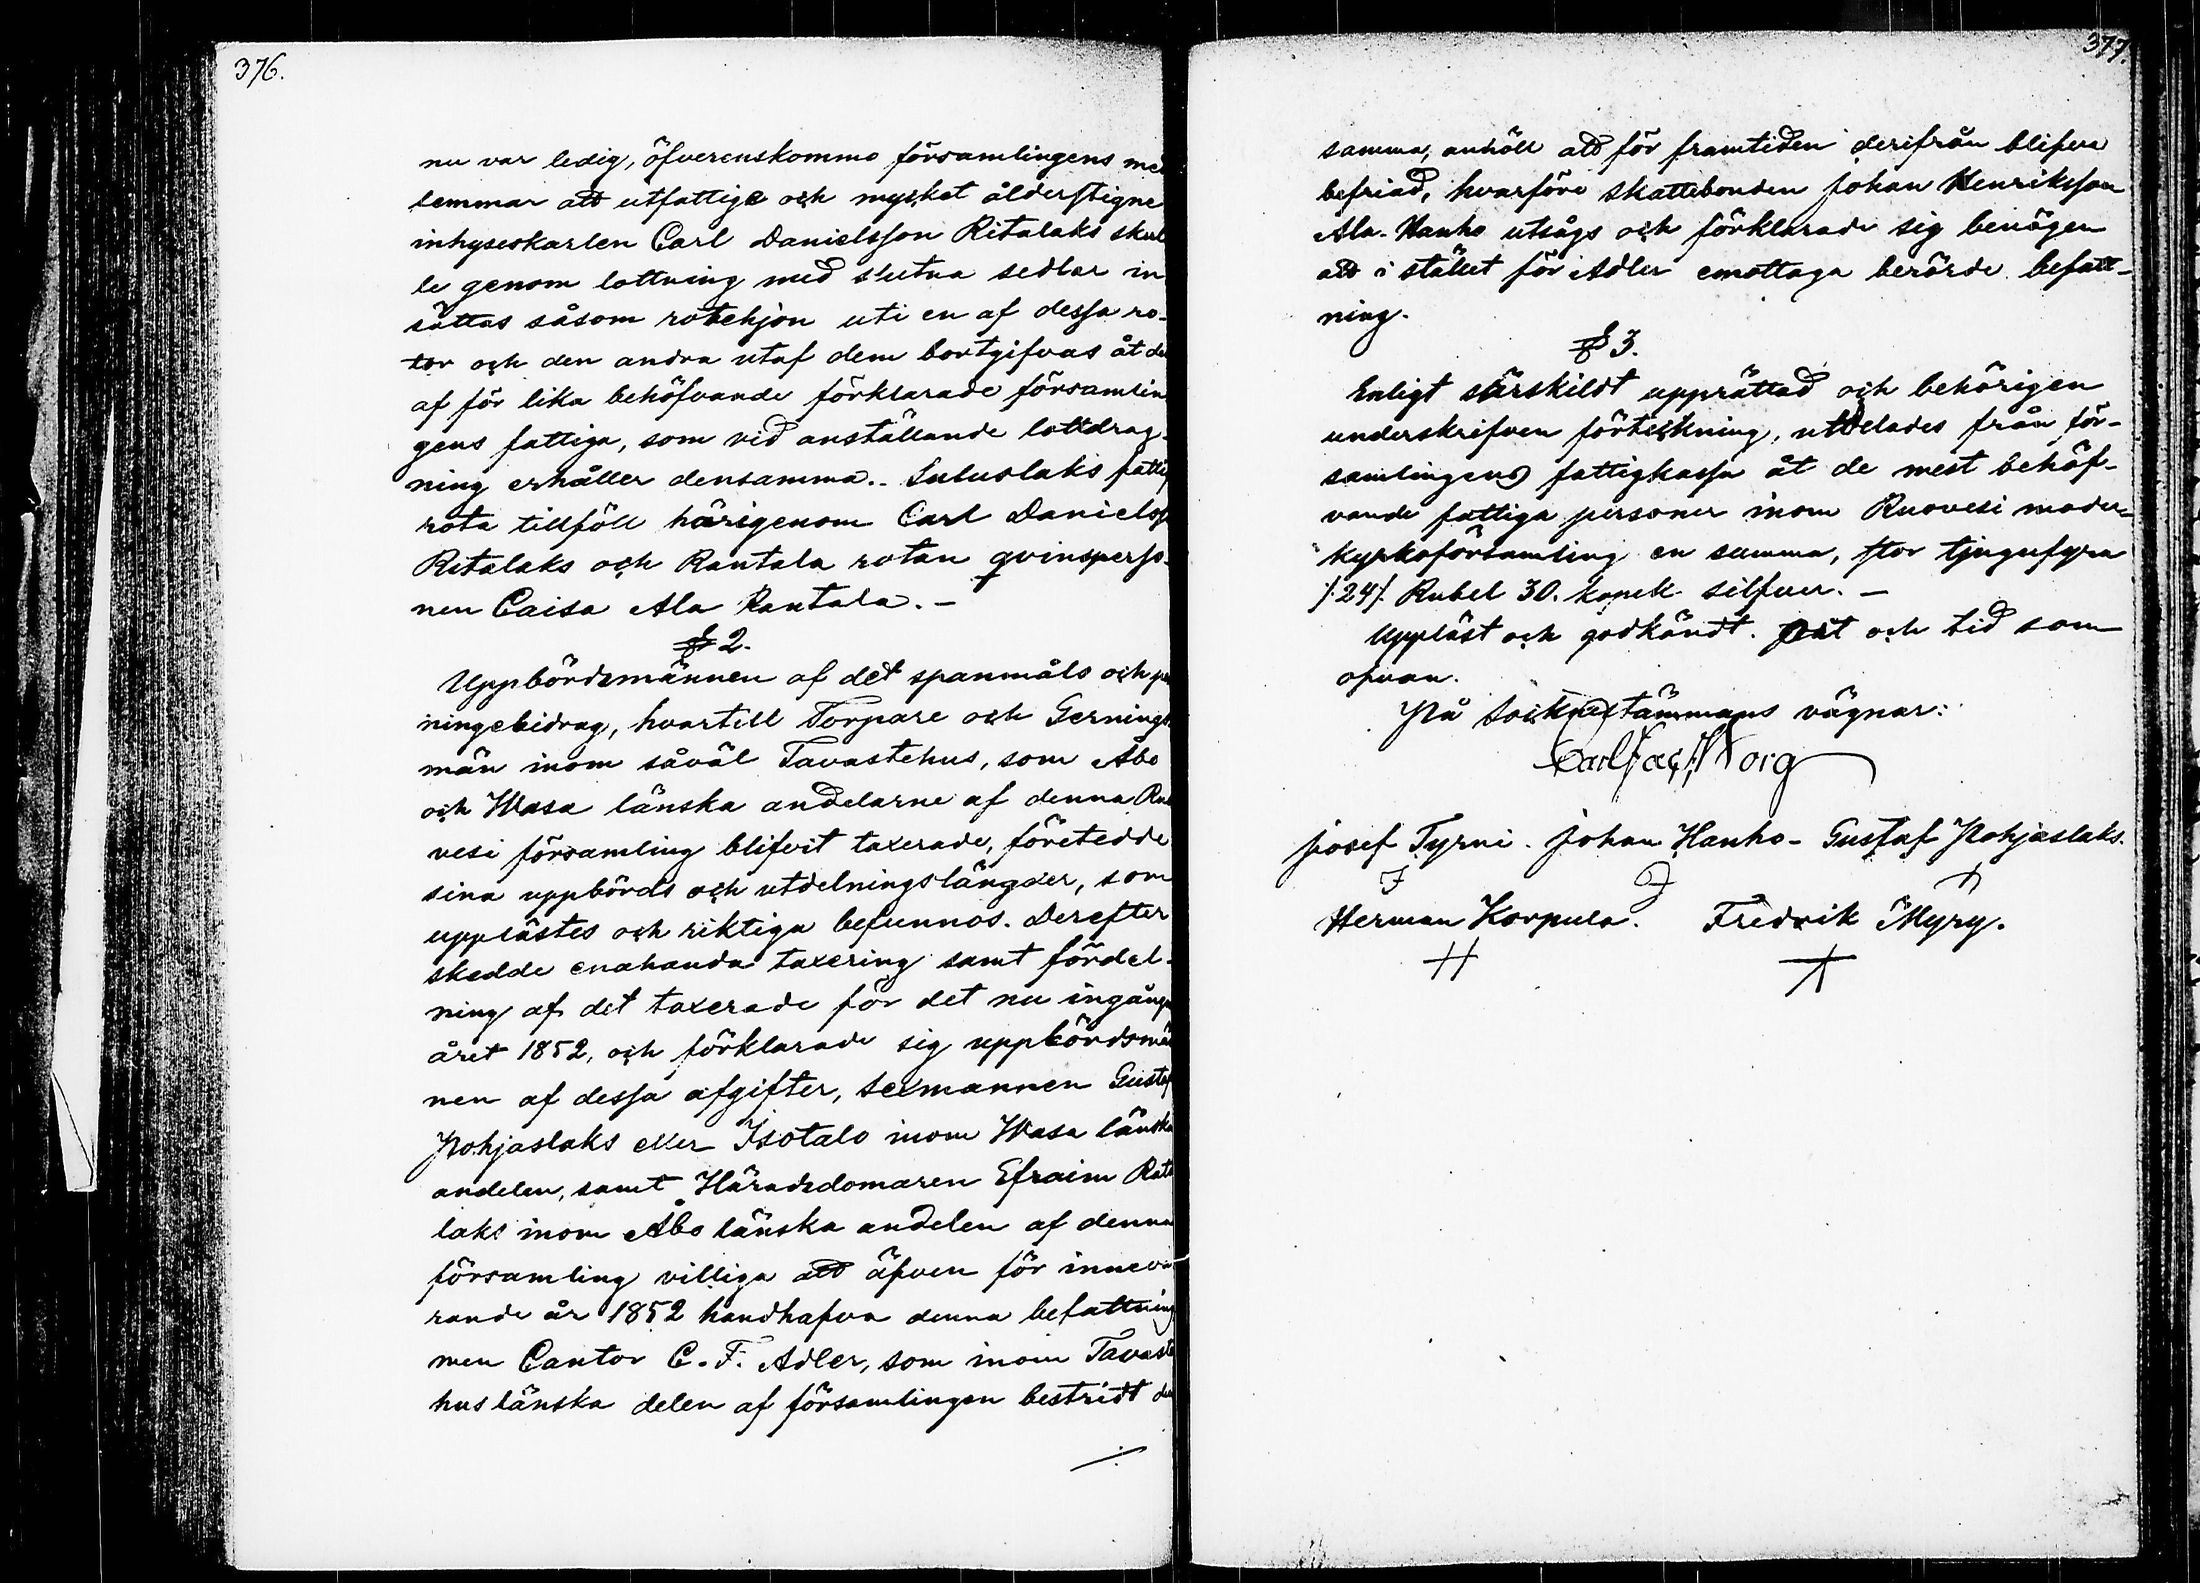 376.
nu var ledig, öfverenskommo församlingens med
lemmar att utfattige och mycket ålderstigne
inhyseskarlen Carl Danielsson Ritalaks skul
le genom lottning med slutna sedlar in
sättas såsom rotehjon uti en af dessa ro-
tor och den andra utaf dem bortgifvas åt den
af för lika behöfvande förklarade församlin
gens fattiga, som vid anställande lottdrag-
ning erhåller densamma.- Suluslaks fattig
rota tillföll härigenom Carl Danielss
Ritalaks och Rantala rotan qvinsperso-
nen Caisa Ala Rantala.-
§ 2.
Uppbördsmännen af det spanmåls och pen
ningebidrag, hvartill Torpare och Gernings
män inom såväl Tavastehus, som Åbo
och Wasa länska andelarne af denna Ruo
vesi församling blifvit taxerade, företedde
sina uppbörds och utdelningslängder, som
upplästes och riktiga befunnos. Derefter
skedde enahanda taxering samt fördel-
ning af det taxerade för det nu ingångna
året 1852, och förklarade sig uppbördsmän
nen af dessa afgifter, sexmannen Gustaf
Pohjaslaks eller Isotalo inom Wasa länska
andelen, samt Häradsdomaren Efraim Rata
laks inom Åbo länska andelen af denna
församling villiga att äfven för inneva
rande år 1852 handhafva denna befattning
men Cantor C. F. Adler, som inom Tavaste
hus länska delen af församlingen bestridt den
./.
377.
samma, anhöll att för framtiden derifrån blifva
befriad, hvarföre skattebonden Johan Henriksson
Ala-Hanho utsågs och förklarade sig benägen
att i stället för Adler emottaga berörde befatt-
ning.
§ 3.
Enligt särskildt upprättad och behörigen
underskrifven förteckning, utdelades från för-
samlingens fattigkassa åt de mest behöf-
vande fattiga personer inom Ruovesi moder-
kyrkoförsamling en summa, stor tjugufyra
/:24/: Rubel 30. kopek silfver. -
Uppläst och godkändt. Dat och tid som
ofvan.
På Socknestämmans vägnar:
Josef Tyrni. Johan Hanho- Gustaf Pohjaslaks.
Herman Korpula. Fredrik Myry.